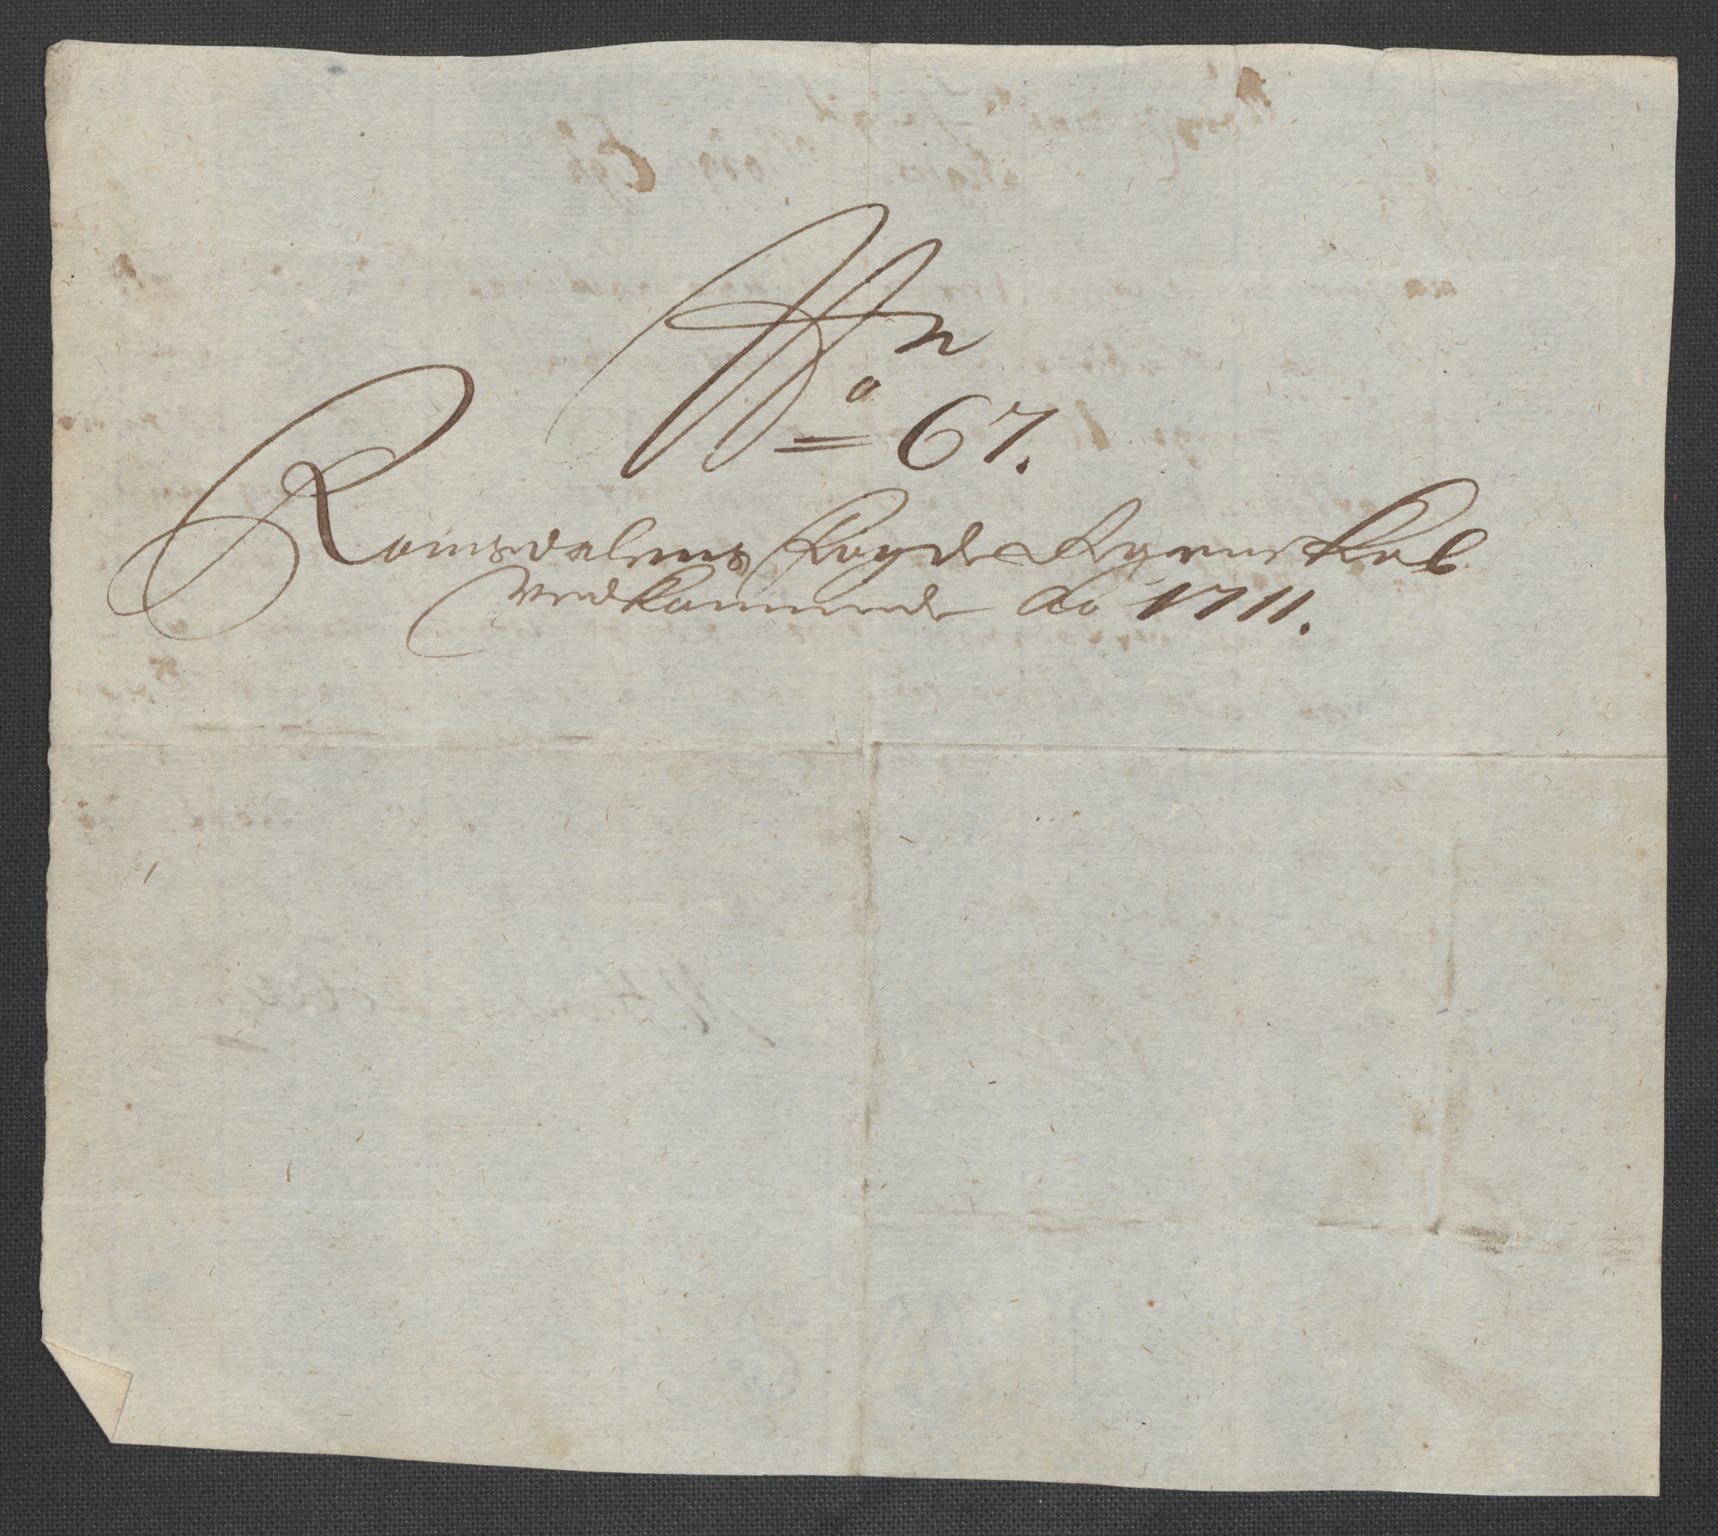 No 67.
Romsdalens Fogde Regenskab
Vedkommende Ao 1711.